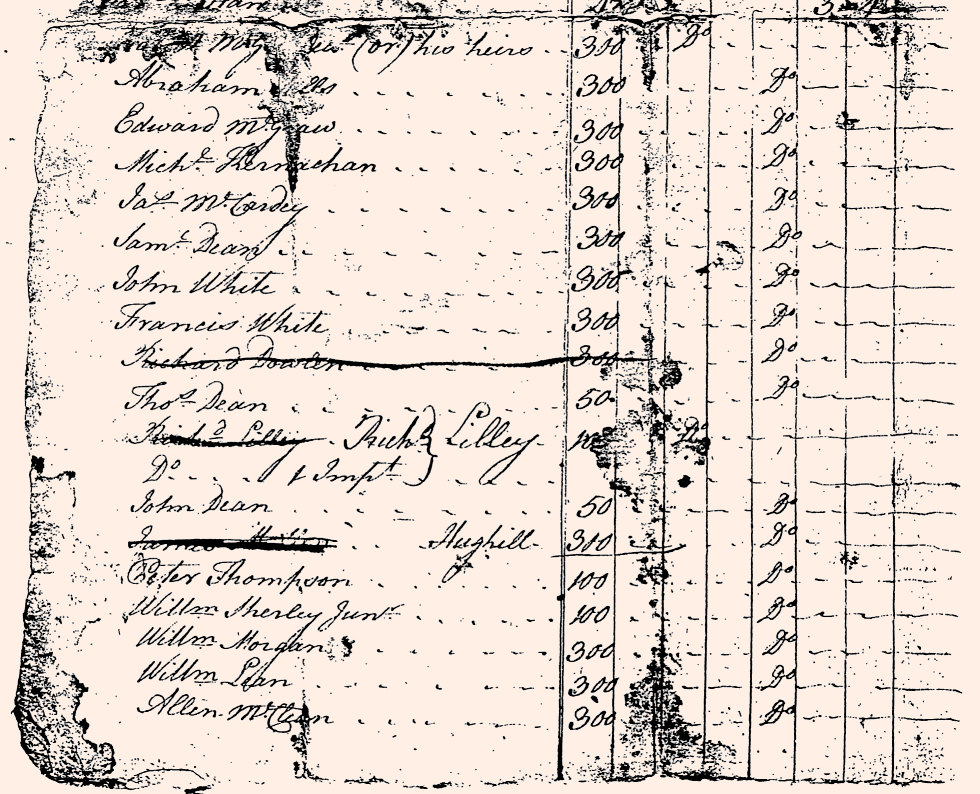 McG (or) his heirs 300 Do
Abraham 300 Do
Edward McGraw 300 Do
Michl. Kernachan 300 Do
Jas. McCardey 300 Do
Saml. Dean 300 Do
John White 300 Do
Francis White 300 Do
Richard Dowlen 300 Do
Thos. Dean 50 Do
Richd. Lilley Richd. } Lilley Do
Do & Impt.
John Dean 50 Do
James Hughill 300 Do
Peter Thompson 100 Do
Willm Sherley Junr. 100 Do
Willm Morgan 300 Do
Willm Lean 300 Do
Allen McClean 300 Do